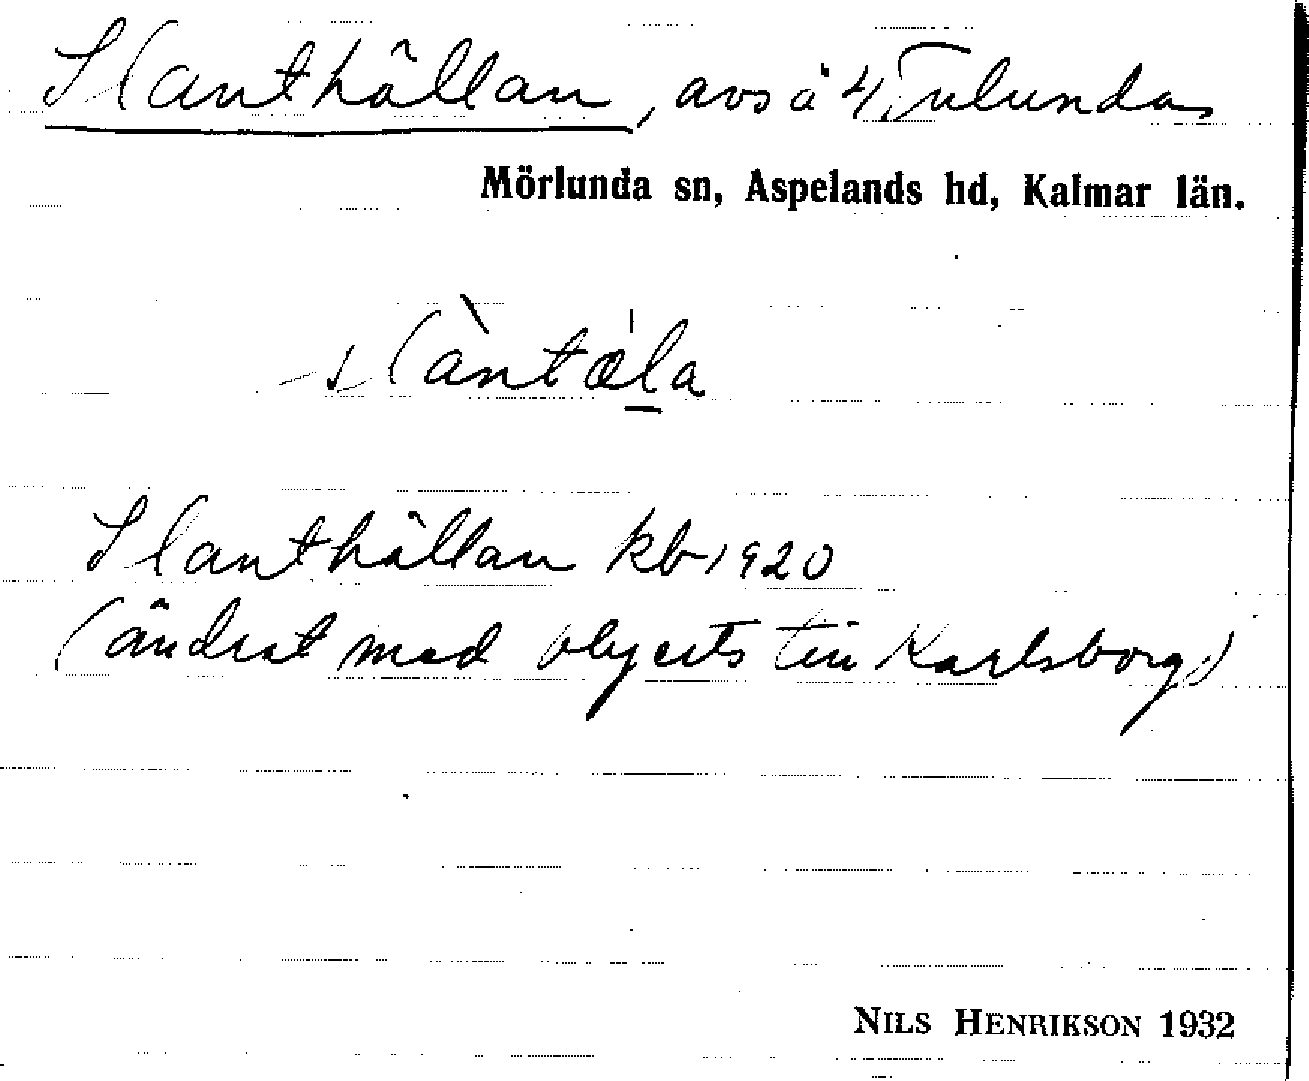 Slanthällan, avs å 4, Tulunda
Mörlunda sn, Aspelands hd, Kalmar län.
slàntæ̀la
Slanthällan kb 1920
(ändrat med blyerts till Karlsborg)
NILS HENRIKSON 1932